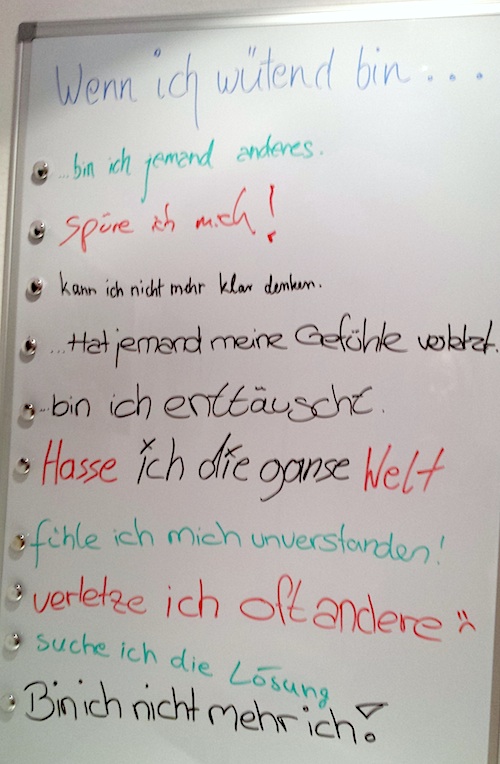 Wenn ich wütend bin...
...bin ich jemand anderes.
Spüre ich mich!
kann ich nicht mehr klar denken.
...Hat jemand meine Gefühle verletzt.
...bin ich enttäuscht.
Hasse ich die ganse Welt
fühle ich mich unverstanden!
verletze ich oft andere :(
suche ich die Lösung
Bin ich nicht mehr ich!